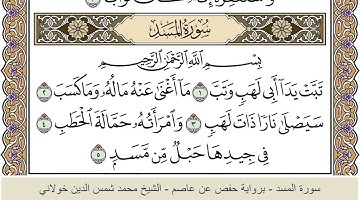 سُورَةُ المَسَدِ
بِسْمِ اللَّهِ الرَّحْمَٰنِ الرَّحِيمِ
تَبَّتْ يَدَا أَبِي لَهَبٍ وَتَبَّ ١ مَا أَغْنَىٰ عَنْهُ مَالُهُ وَمَا كَسَبَ ٢
سَيَصْلَىٰ نَارًا ذَاتَ لَهَبٍ ٣ وَامْرَأَتُهُ حَمَّالَةَ الْحَطَبِ ٤
فِي جِيدِهَا حَبْلٌ مِّن مَّسَدٍ ٥
سورة المسد - برواية حفص عن عاصم - الشيخ محمد شمس الدين خولاني